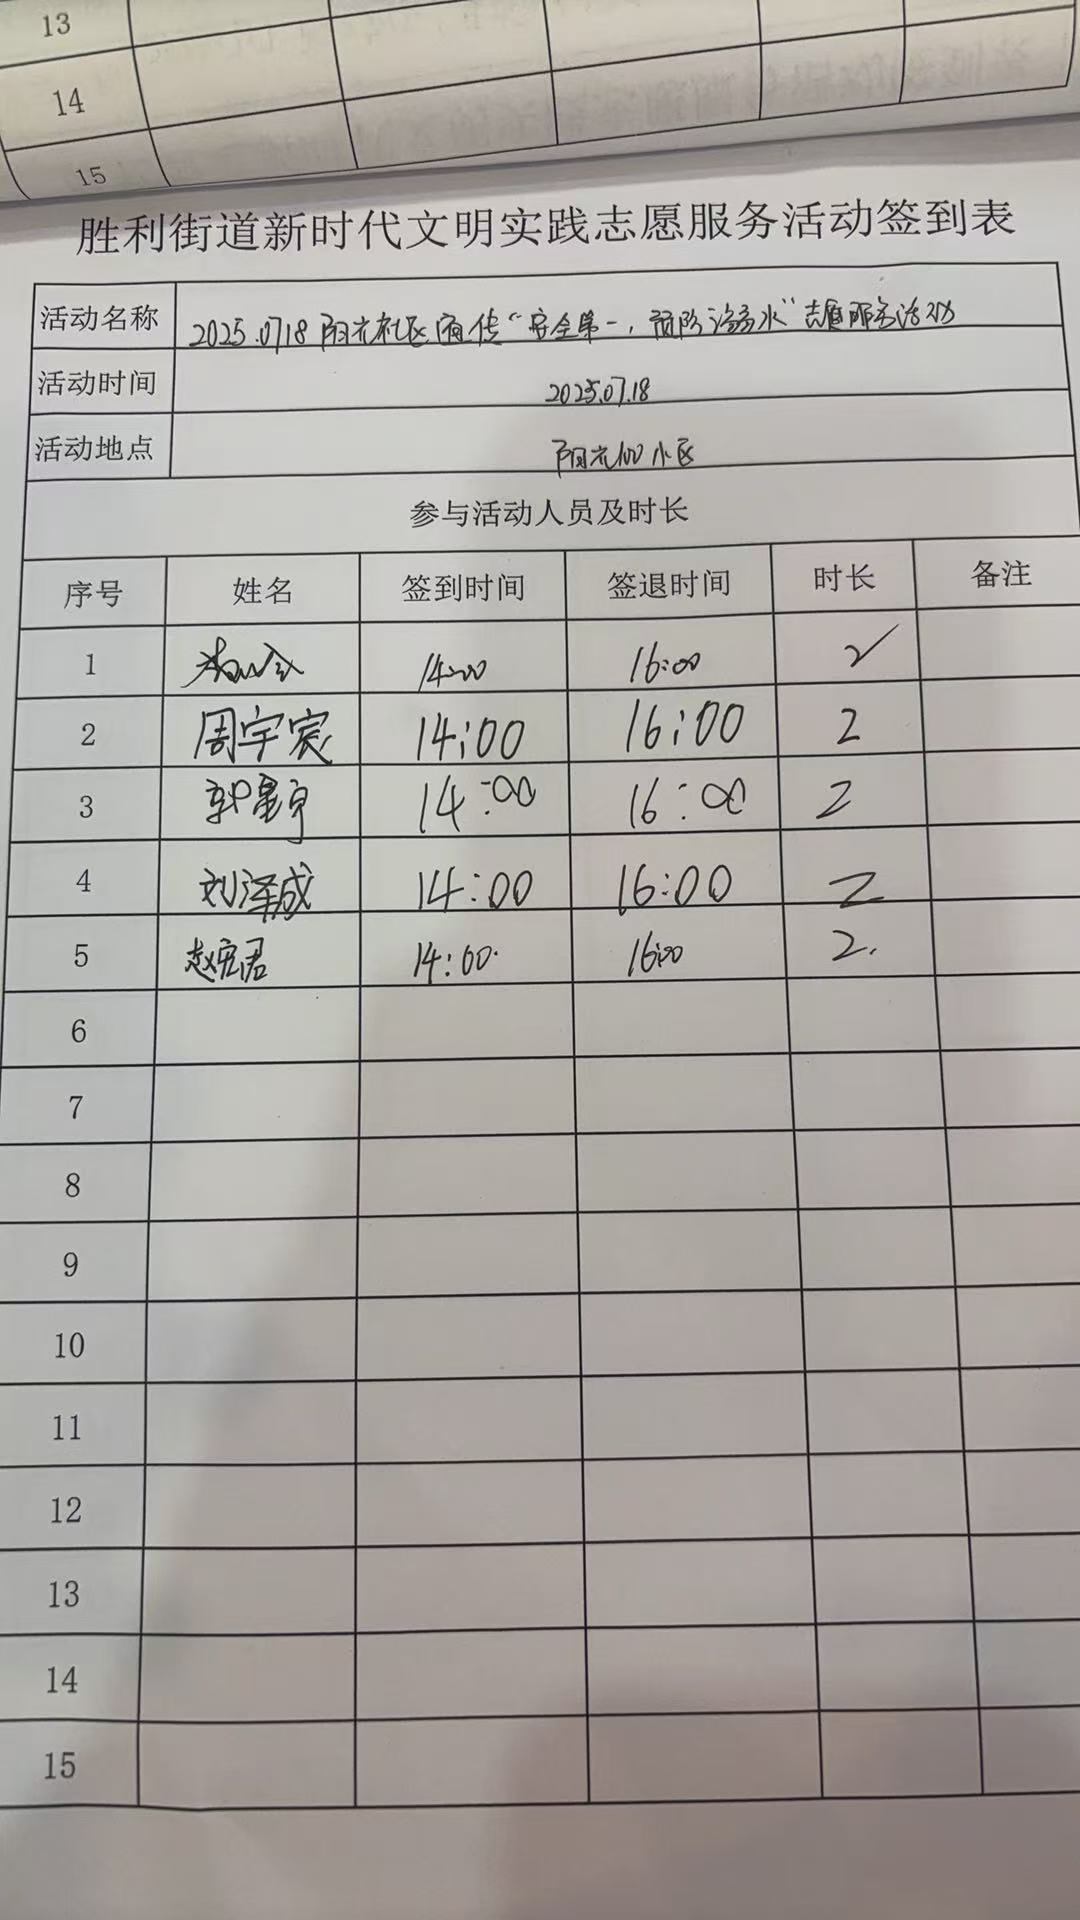 13
14
15
胜利街道新时代文明实践志愿服务活动签到表
活动名称 2025.0718 阳光社区宣传“安全第一，预防溺水”志愿服务活动
活动时间 2025.07.18
活动地点 阳光100小区
参与活动人员及时长
序号 姓名 签到时间 签退时间 时长 备注
1 14:00 16:00 2
2 周宇宸 14:00 16:00 2
3 14:00 16:00 2
4 刘泽成 14:00 16:00 2
5 赵宏君 14:00. 16:00 2.
6
7
8
9
10
11
12
13
14
15